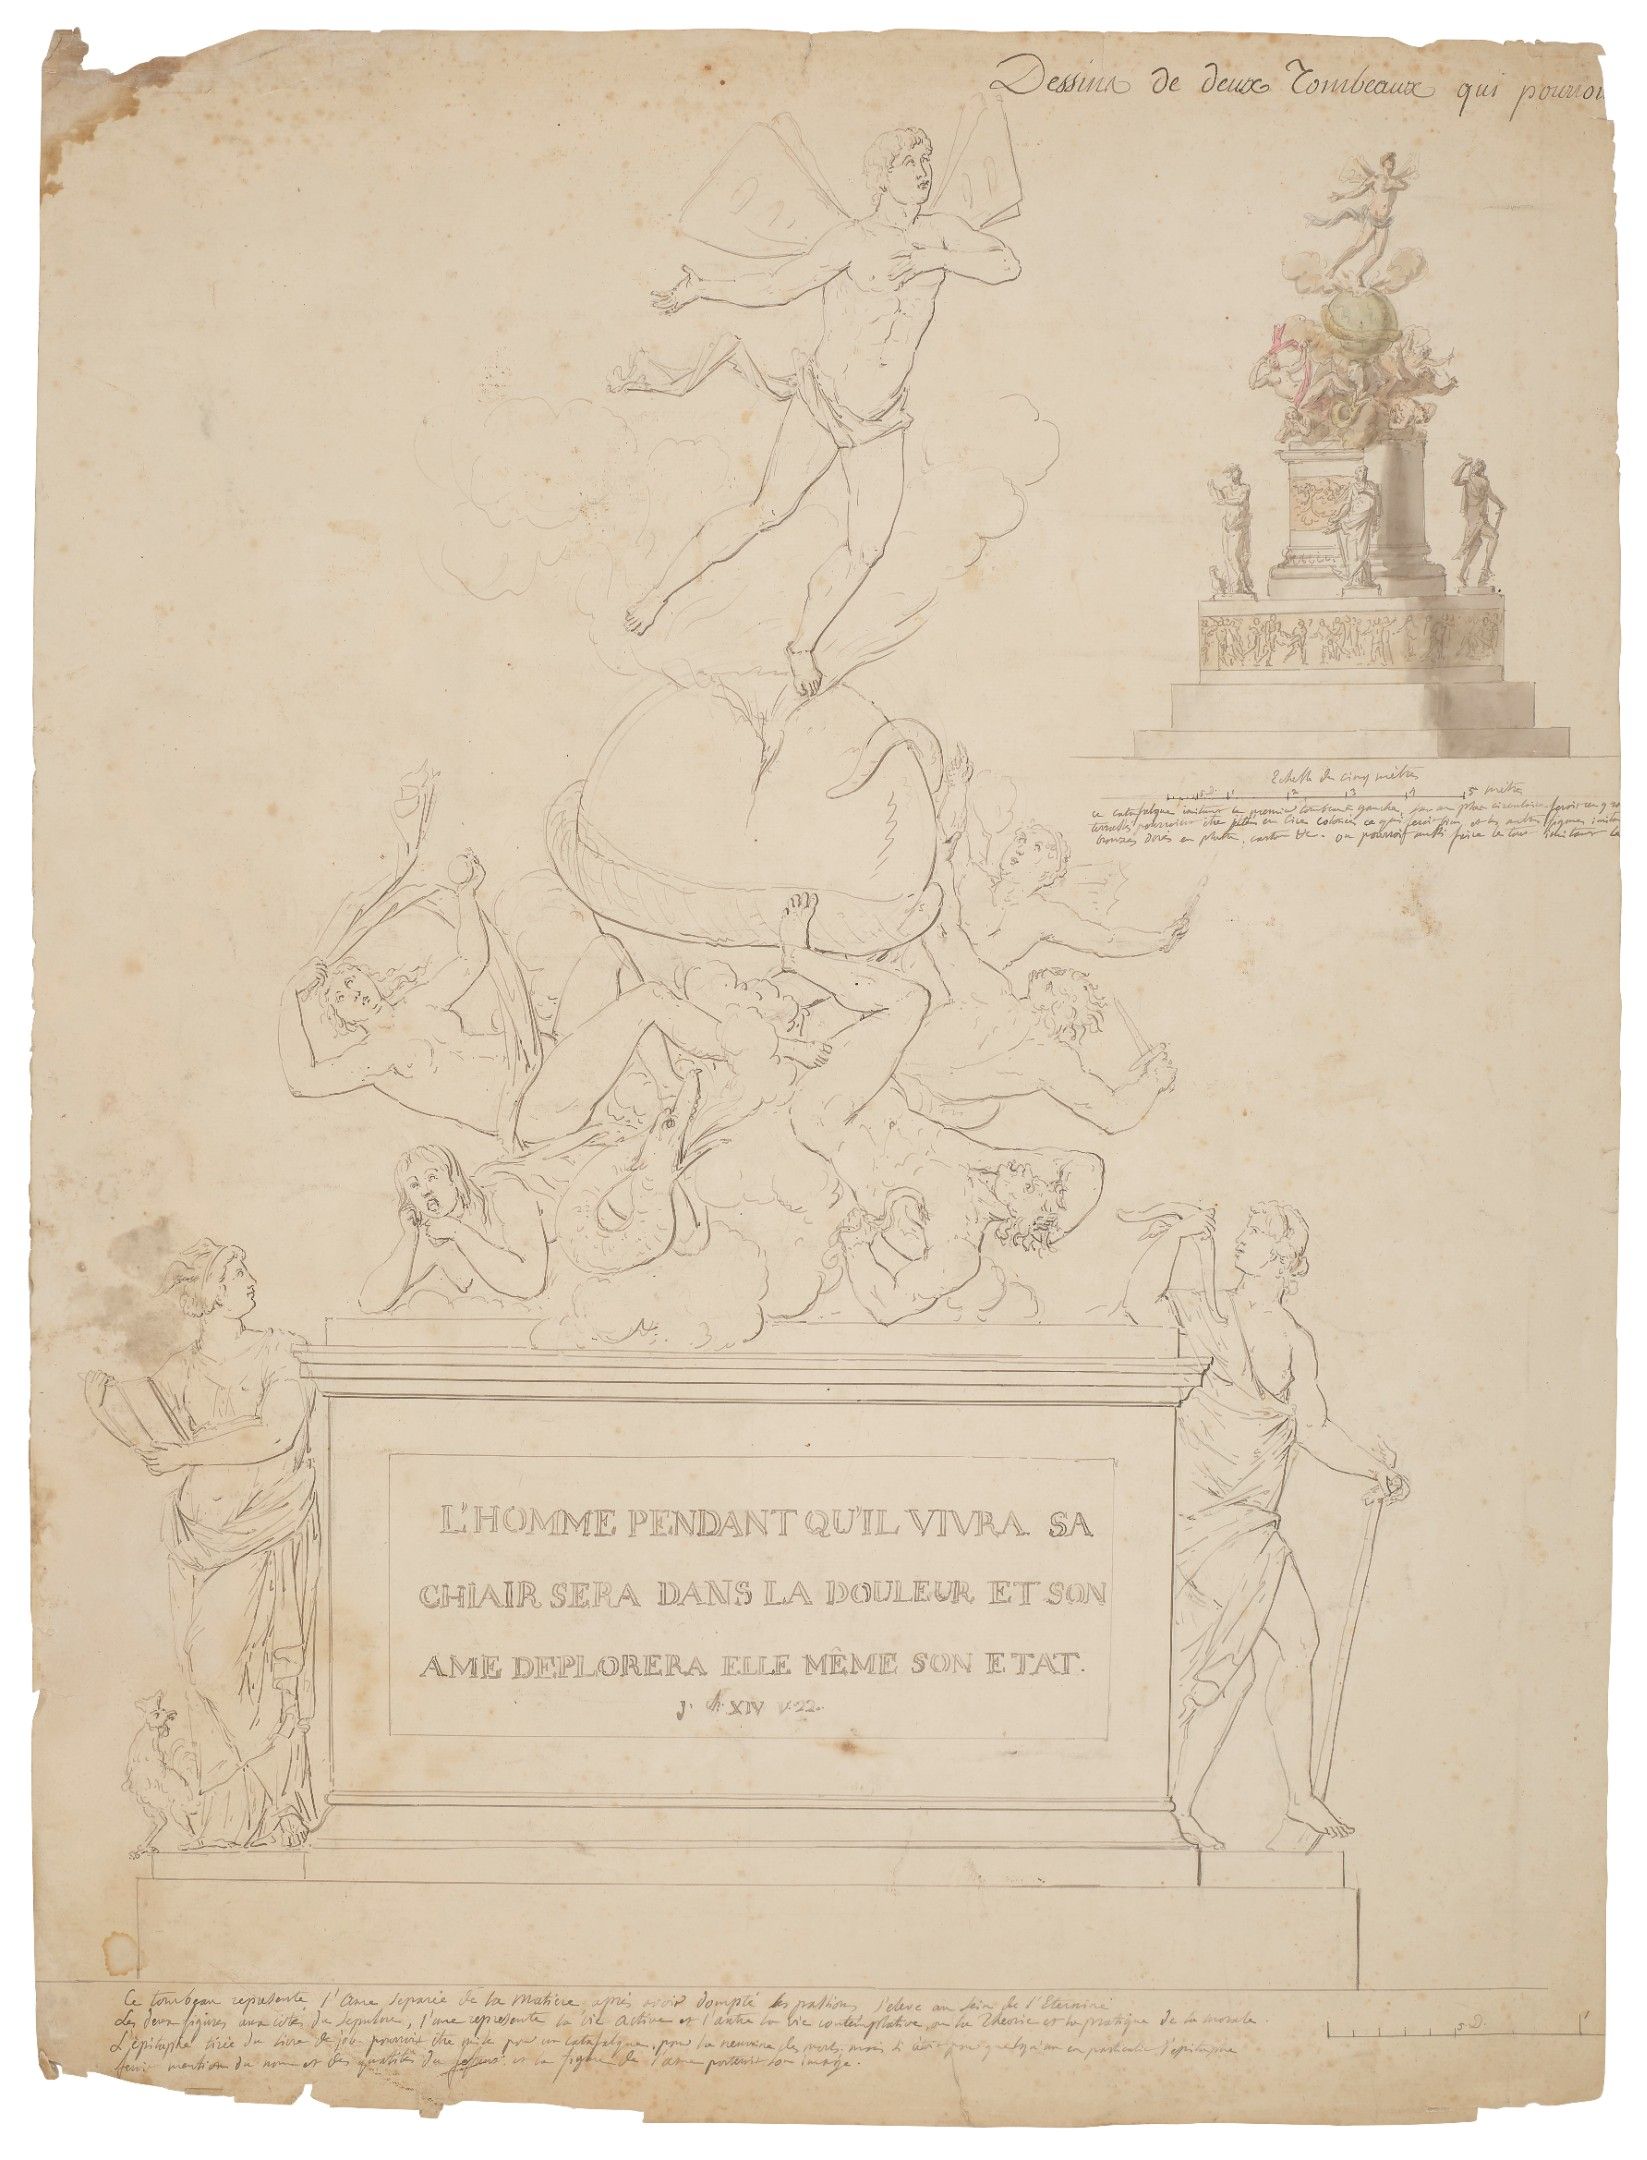 Dessins de deux Tombeaux qui pourroi
Echelle de cinq mètres
1 2 3 4 5 mètres
ce catafalque imitant le premier tombeau a gauche, sur un plan circulaire
pourroient être en cire colorée ce qui et les autres figures
bronzés dorés en platre, carton &c. on pourroit aussi faire le tout imitant le
L'HOMME PENDANT QU'IL VIVRA SA
CHIAIR SERA DANS LA DOULEUR ET SON
AME DEPLORERA ELLE MÊME SON ETAT.
J. ch. XIV v. 22.
Ce tombeau represente l'Ame separée de la Matiere après avoir dompté les passions s'eleve au sein de l'Eternité
Les deux figures aux cotés du sepulcre, l'une represente la vie active et l'autre la vie contemplative, ou la Theorie et la pratique de la morale.
L'épitaphe tirée du livre de job pourroit être mise pour un catafalque, pour la neuvaine des morts, mais si c'étoit pour quelqu'un en particulier l'epitaphe
feroit mention du nom et des qualités du defunt et la figure de l'ame porteroit son image.
5 D. 1